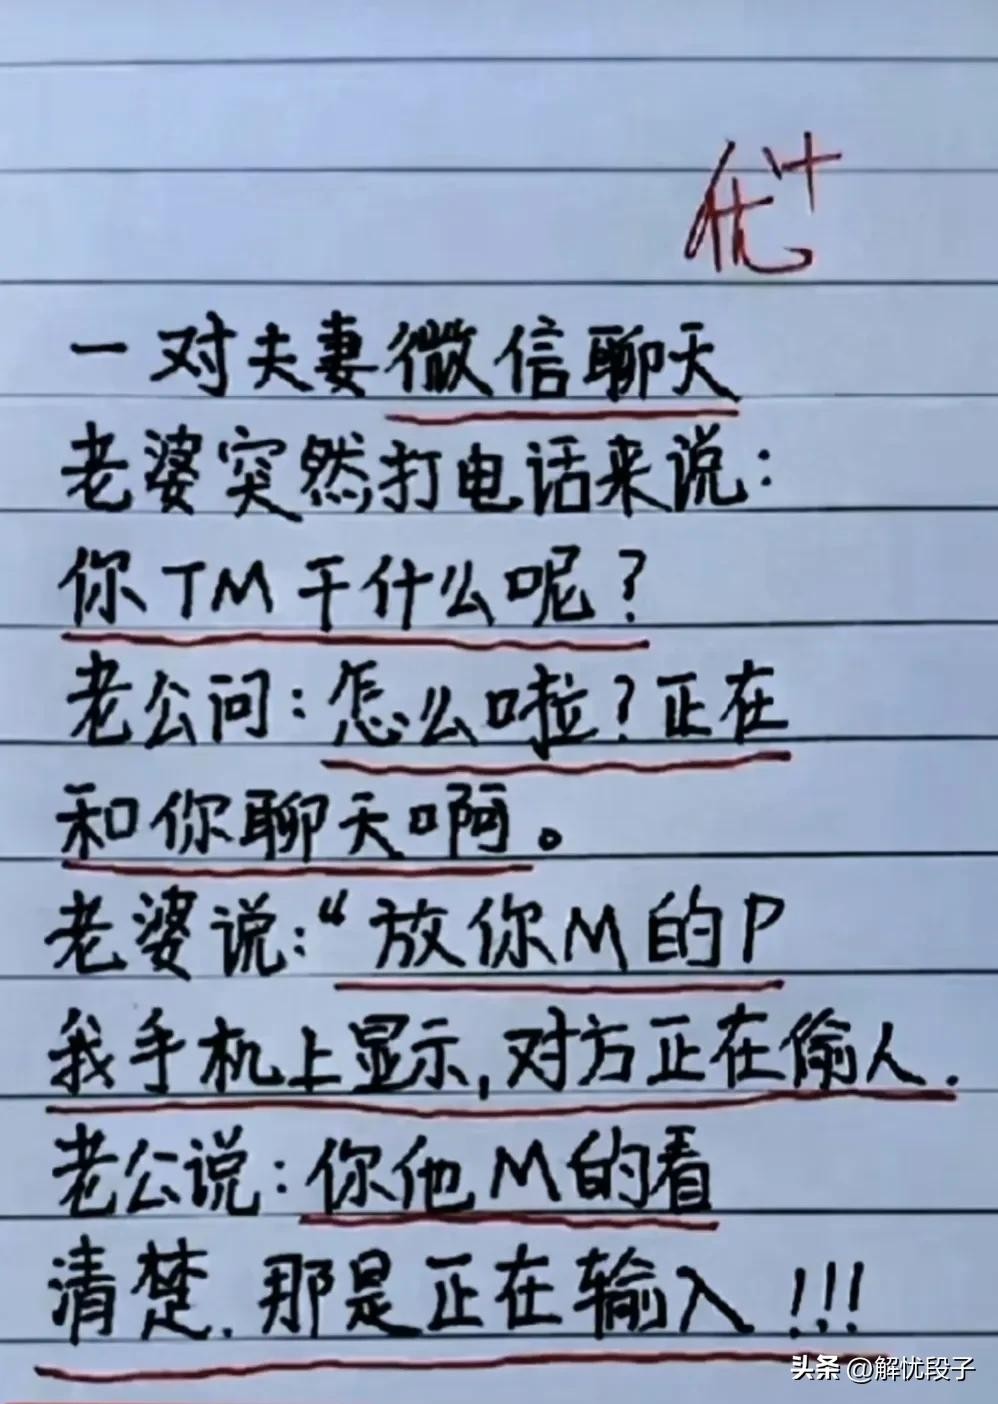 优+
一对夫妻微信聊天
老婆突然打电话来说：
你TM干什么呢？
老公问：怎么啦？正在
和你聊天啊。
老婆说：“放你M的P
我手机上显示，对方正在偷人.
老公说：你他M的看
清楚.那是正在输入!!!
头条 @解忧段子